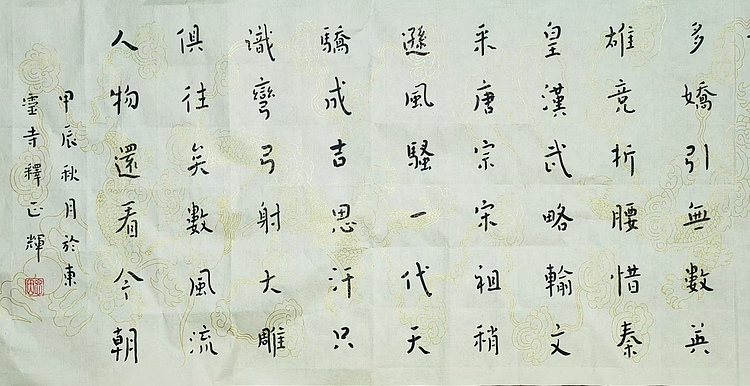 多嬌引無數英
雄竞折腰惜秦
皇漢武略輸文
采唐宗宋祖稍
遜風騷一代天
驕成吉思汗只
識彎弓射大雕
俱往矣數風流
人物還看今朝
甲辰秋月於東
霊寺釋正輝